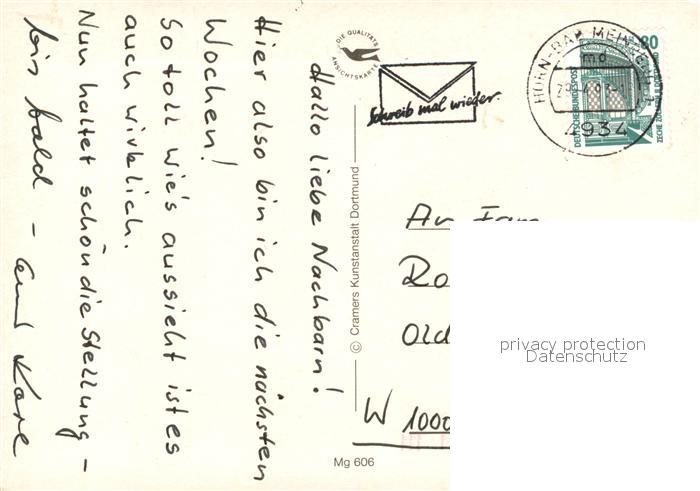 Hallo liebe Nachbarn!
Hier also bin ich die nächsten
Wochen!
So toll wie's aussieht ist es
auch wirklich.
Nun haltet schön die Stellung -
bis bald -
DIE QUALITÄTS
ANSICHTSKARTE
Schreib mal wieder
© Cramers Kunstanstalt Dortmund
Mg 606
HORN-BAD MEINBERG 1
md
4934
80
DEUTSCHE BUNDESPOST
An Fam
Ro
Old
W 1000
privacy protection
Datenschutz